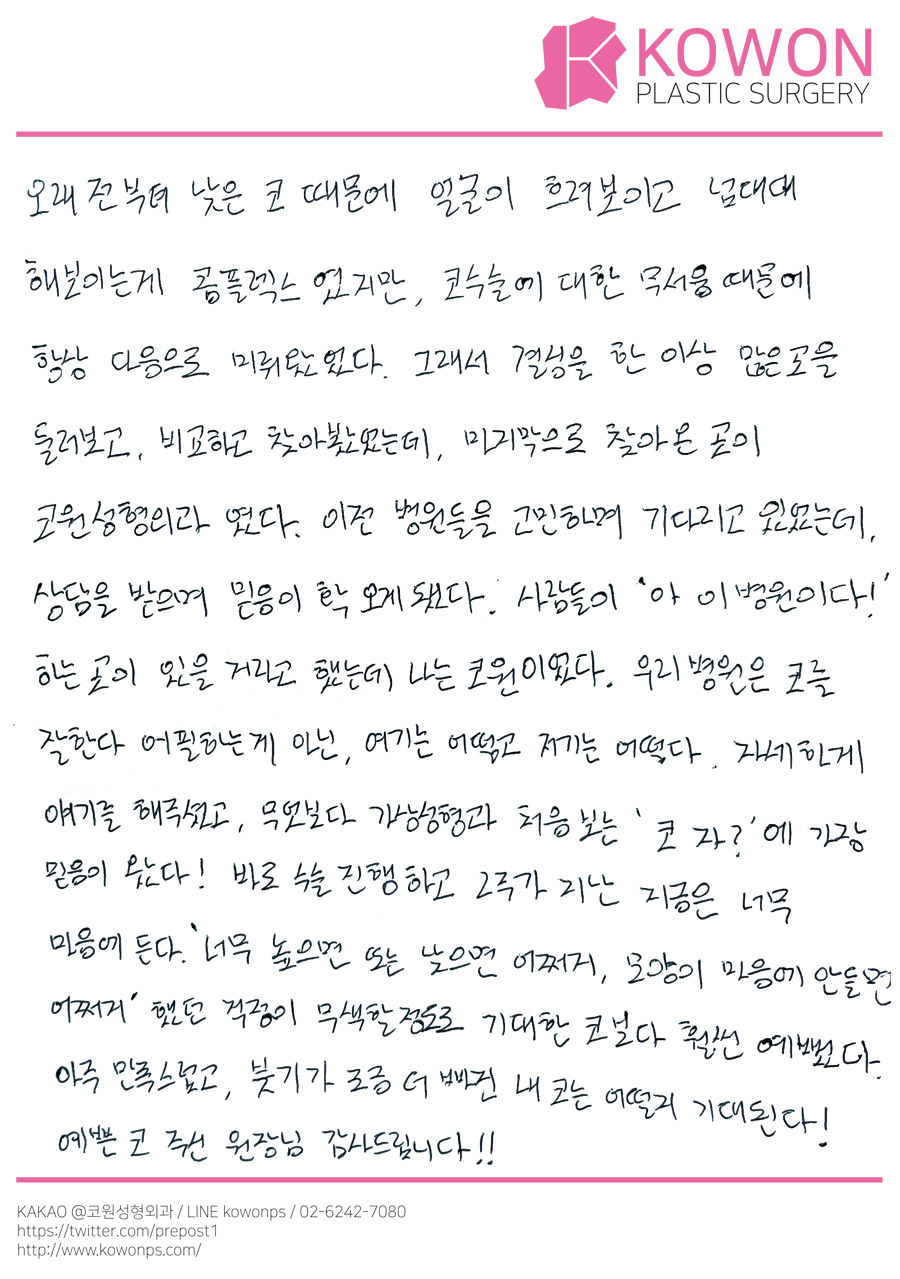 KOWON
PLASTIC SURGERY
오래 전부터 낮은 코 때문에 얼굴이 흐려보이고 넙대대
해보이는게 콤플렉스 였지만, 코수술에 대한 무서움 때문에
항상 다음으로 미뤄왔었다. 그래서 결심을 한 이상 많은곳을
둘러보고, 비교하고 찾아봤었는데, 마지막으로 찾아온 곳이
코원성형외과 였다. 이전 병원들을 고민하며 기다리고 있었는데,
상담을 받으며 믿음이 확 오게 됐다. 사람들이 '아 이 병원이다!'
하는 곳이 있을 거라고 했는데, 나는 코원이었다. 우리 병원은 코를
잘한다 어필하는게 아닌, 여기는 어떻고 저기는 어떻다. 자세하게
얘기를 해주셨고, 무엇보다 가상성형과 처음 보는 '코 자?'에 가장
믿음이 왔다! 바로 수술 진행하고 2주가 지난 지금은 너무
마음에 든다. '너무 높으면 또는 낮으면 어쩌지, 모양이 마음에 안들면
어쩌지' 했던 걱정이 무색할정도로 기대한 코보다 훨씬 예뻤다.
아주 만족스럽고, 붓기가 조금 더 빠진 내 코는 어떨지 기대된다!
예쁜 코 주신 원장님 감사드립니다!!
KAKAO @코원성형외과 / LINE kowonps / 02-6242-7080
https://twitter.com/prepost1
http://www.kowonps.com/